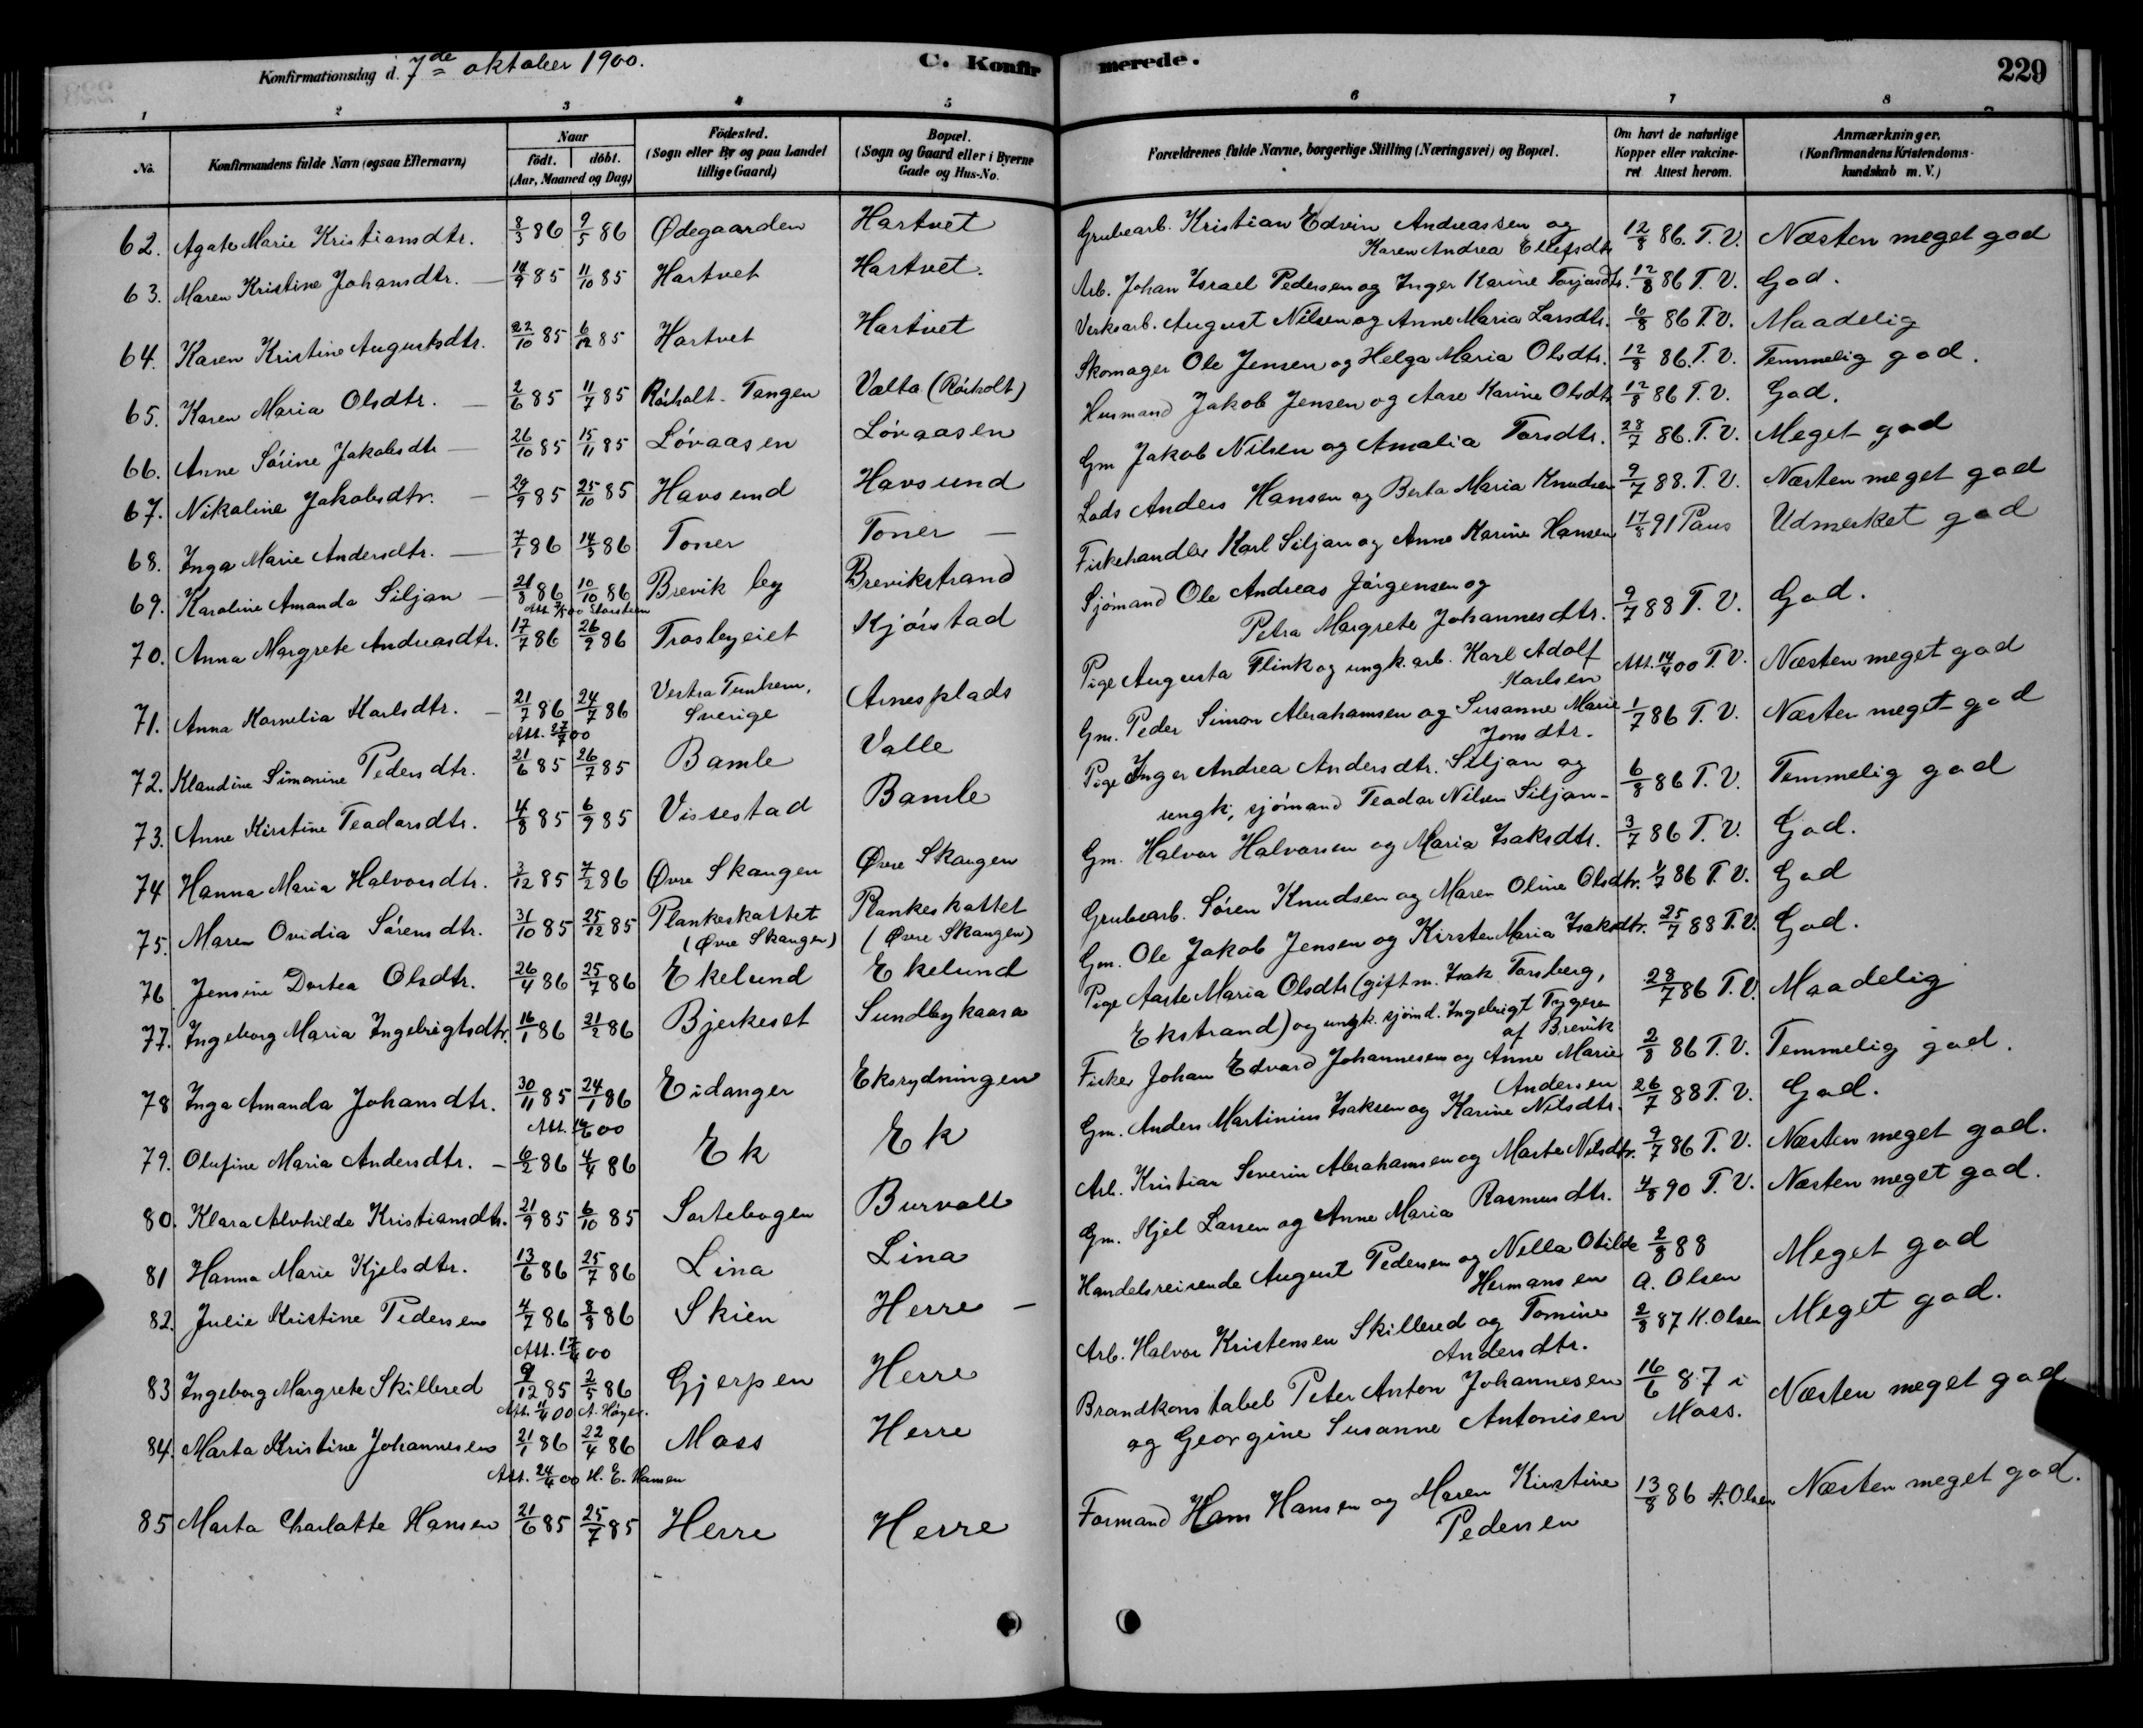 Konfirmationsdag d. 7de oktober 1900.
C. Konfirmerede.
229
1 2 3 4 5 6 7 8
No.
Konfirmandens fulde Navn (ogsaa Efternavn)
Naar
födt. döbt.
(Aar, Maaned og Dag)
Födested.
(Sogn eller By og paa Landet
tillige Gaard)
Bopæl.
(Sogn og Gaard eller i Byerne
Gade og Hus-No.
Forældrenes fulde Navne, borgerlige Stilling (Næringsvei) og Bopæl.
Om havt de naturlige
Kopper eller vakcine-
ret Attest herom.
Anmærkninger.
(Konfirmandens Kristendoms-
kundskab m. V.)
62. Agate Marie Kristiansdtr. 8/3 86 9/5 86 Ødegaarden Hartvet Grubearb. Kristian Edvin Andreassen og 12/8 86. T. V. Næsten meget god
Karen Andrea Ellefsdtr
63. Maren Kristine Johansdtr. 14/9 85 11/10 85 Hartvet Hartvet. Arb. Johan Israel Pedersen og Inger Karine Torjusdtr. 12/8 86 T. V. God.
64. Karen Kristine Augustsdtr. 22/10 85 6/12 85 Hartvet Hartvet Verksarb. August Nilsen og Anne Maria Larsdtr. 6/8 86 T. V. Maadelig
65. Karen Maria Olsdtr. 2/6 85 11/7 85 Rörholt-Tangen Valta (Rörholt) Skomager Ole Jensen og Helga Maria Olsdtr. 12/8 86. T. V. Temmelig god.
66. Anne Sörine Jakobsdtr 26/10 85 15/11 85 Lövaasen Lövaasen Husmand Jakob Jensen og Aase Karine Olsdtr 12/8 86 T. V. God.
67. Nikoline Jakobsdtr. 29/9 85 25/10 85 Havsund Havsund Gm Jakob Nilsen og Amalia Torsdtr. 28/7 86. T. V. Meget god
68. Inga Marie Andersdtr. 7/1 86 14/3 86 Toner Toner Lods Anders Hansen og Berta Maria Knudsen 9/7 88. T. V. Næsten meget god
69. Karoline Amanda Siljan 21/8 86 10/10 86 Brevik by Brevikstrand Fiskehandler Karl Siljan og Anne Karine Hansen 17/8 91 Paus Udmerket god
70. Anna Margrete Andreasdtr. 17/7 86 26/9 86 Trosbyeiet Kjörstad Sjömand Ole Andreas Jörgensen og
Petra Margrete Johannesdtr. 9/7 88 T. V. God.
71. Anna Kornelia Karlsdtr. 21/7 86 24/7 86 Vestra Tunhem, Sverige Arnesplads Pige Augusta Flink og ungk. arb. Karl Adolf Att. 14/4 00 T. V. Næsten meget god
Att. 27/7 00
Karlsen
72. Klandine Simonine Pedersdtr. 21/6 85 26/7 85 Bamle Valle Gm. Peder Simon Abrahamsen og Susanne Marie 1/7 86 T. V. Næsten meget god
Jonsdtr.
73. Anne Kirstine Teodorsdtr. 4/8 85 6/9 85 Vissestad Bamle Pige Inger Andrea Andersdtr. Siljan og 6/8 86 T. V. Temmelig god
ungk, sjömand Teodor Nilsen Siljan-
74 Hanna Maria Halvorsdtr. 3/12 85 7/2 86 Øvre Skaugen Øvre Skaugen Gm. Halvor Halvorsen og Maria Isaksdtr. 3/7 86 T. V. God.
75. Maren Ovidia Sörensdtr. 31/10 85 25/12 85 Plankeskattet Plankeskattet Grubearb. Sören Knudsen og Maren Oline Olsdtr. 1/7 86 T. V. God
(Øvre Skaugen) (Øvre Skaugen)
76 Jensine Dortea Olsdtr. 26/4 86 25/7 86 Ekelund Ekelund Gm. Ole Jakob Jensen og Kirsten Maria Isaksdtr. 25/7 88 T. V. God.
77. Ingeborg Maria Ingebrigtsdtr. 16/1 86 21/2 86 Bjerkeset Sundbykaasa Pige Aaste Maria Olsdtr (gift m. Isak Torsberg, 28/7 86 T. V. Maadelig
Ekstrand) og ungk. sjömd. Ingebrigt Tygesen
af Brevik
78 Inga Amanda Johansdtr. 30/11 85 24/1 86 Eidanger Eksrydningen Fisker Johan Edvard Johannesen og Anne Marie 2/8 86 T. V. Temmelig god.
Andersen
79. Olufine Maria Andersdtr. 6/2 86 4/4 86 Ek Ek Gm. Anders Martinius Isaksen og Karine Nilsdtr. 26/7 88 T. V. God.
80. Klara Alvhilde Kristiansdtr. 21/9 85 6/10 85 Sortebogen Burvall Arb. Kristian Severin Abrahamsen og Marte Nilsdtr. 9/7 86 T. V. Næsten meget god.
81 Hanna Marie Kjelsdtr. 13/6 86 25/7 86 Lina Lina Gm. Kjel Larsen og Anne Maria Rasmusdtr. 4/8 90 T. V. Næsten meget god.
82. Julie Kristine Pedersen 4/7 86 8/8 86 Skien Herre Handelsreisende August Pedersen og Nella Otilde 2/8 88 Meget god
Hermansen A. Olsen
83 Ingeborg Margrete Skillered 9/12 85 2/5 86 Gjerpen Herre Arb. Halvor Kristensen Skillered og Tomine 2/8 87 K. Olsen Meget god.
Att. 11/4 00 A. Höyer.
Andersdtr.
84. Marta Kristine Johannesen 21/1 86 22/4 86 Moss Herre Brandkonstabel Peter Anton Johannesen 16/6 87 i Næsten meget god
Att. 24/4 00 H. E. Hansen
og Georgine Susanne Antonisen Moss.
85 Marta Charlotte Hansen 21/6 85 25/7 85 Herre Herre Formand Hans Hansen og Maren Kirstine 13/8 86 A. Olsen Næsten meget god.
Pedersen